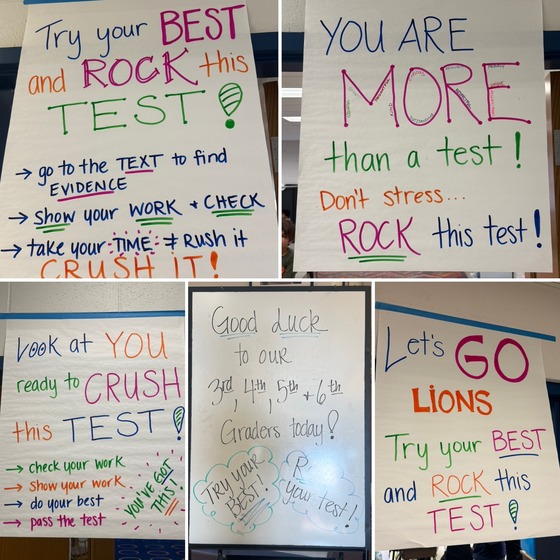 Try your BEST
and ROCK this
TEST!
→ go to the TEXT to find
EVIDENCE
→ Show your WORK + CHECK
→ take your TIME ≠ Rush it
CRUSH IT!
YOU ARE
MORE
than a test!
Don't stress...
ROCK this test!
Look at YOU
ready to CRUSH
this TEST!
→ check your work
→ show your work
→ do your best
→ pass the test
YOU'VE GOT
THIS!
Good Luck
to our
3rd, 4th, 5th + 6th
Graders today!
TRY YOUR
BEST!
your test!
Let's GO
LIONS
Try your BEST
and ROCK this
TEST!